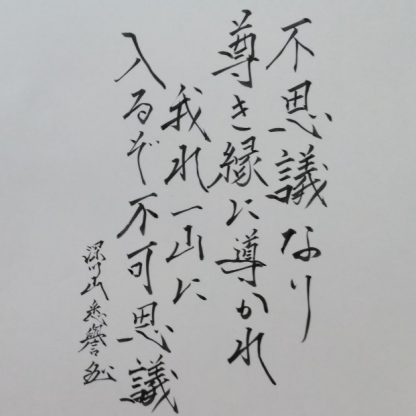 不思議なり
尊き縁に導かれ
我れ一山に
入るぞ不可思議
深川山